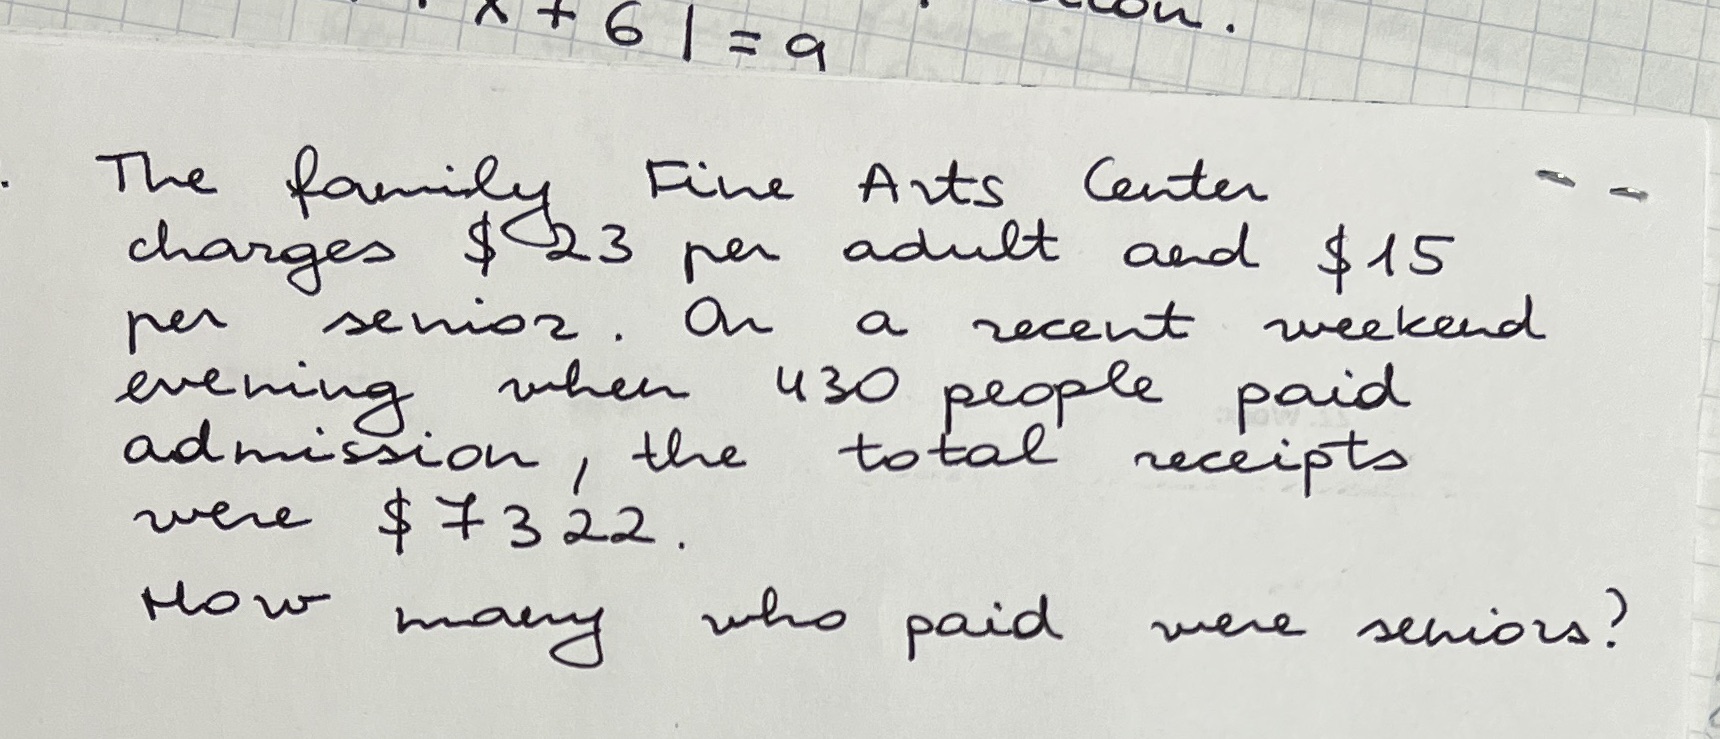 x + 6 | = 9
The family Fine Arts Center
charges $23 per adult and $15
per senior. On a recent weekend
evening when 430 people paid
admission, the total receipts
were $7322.
How many who paid were seniors?